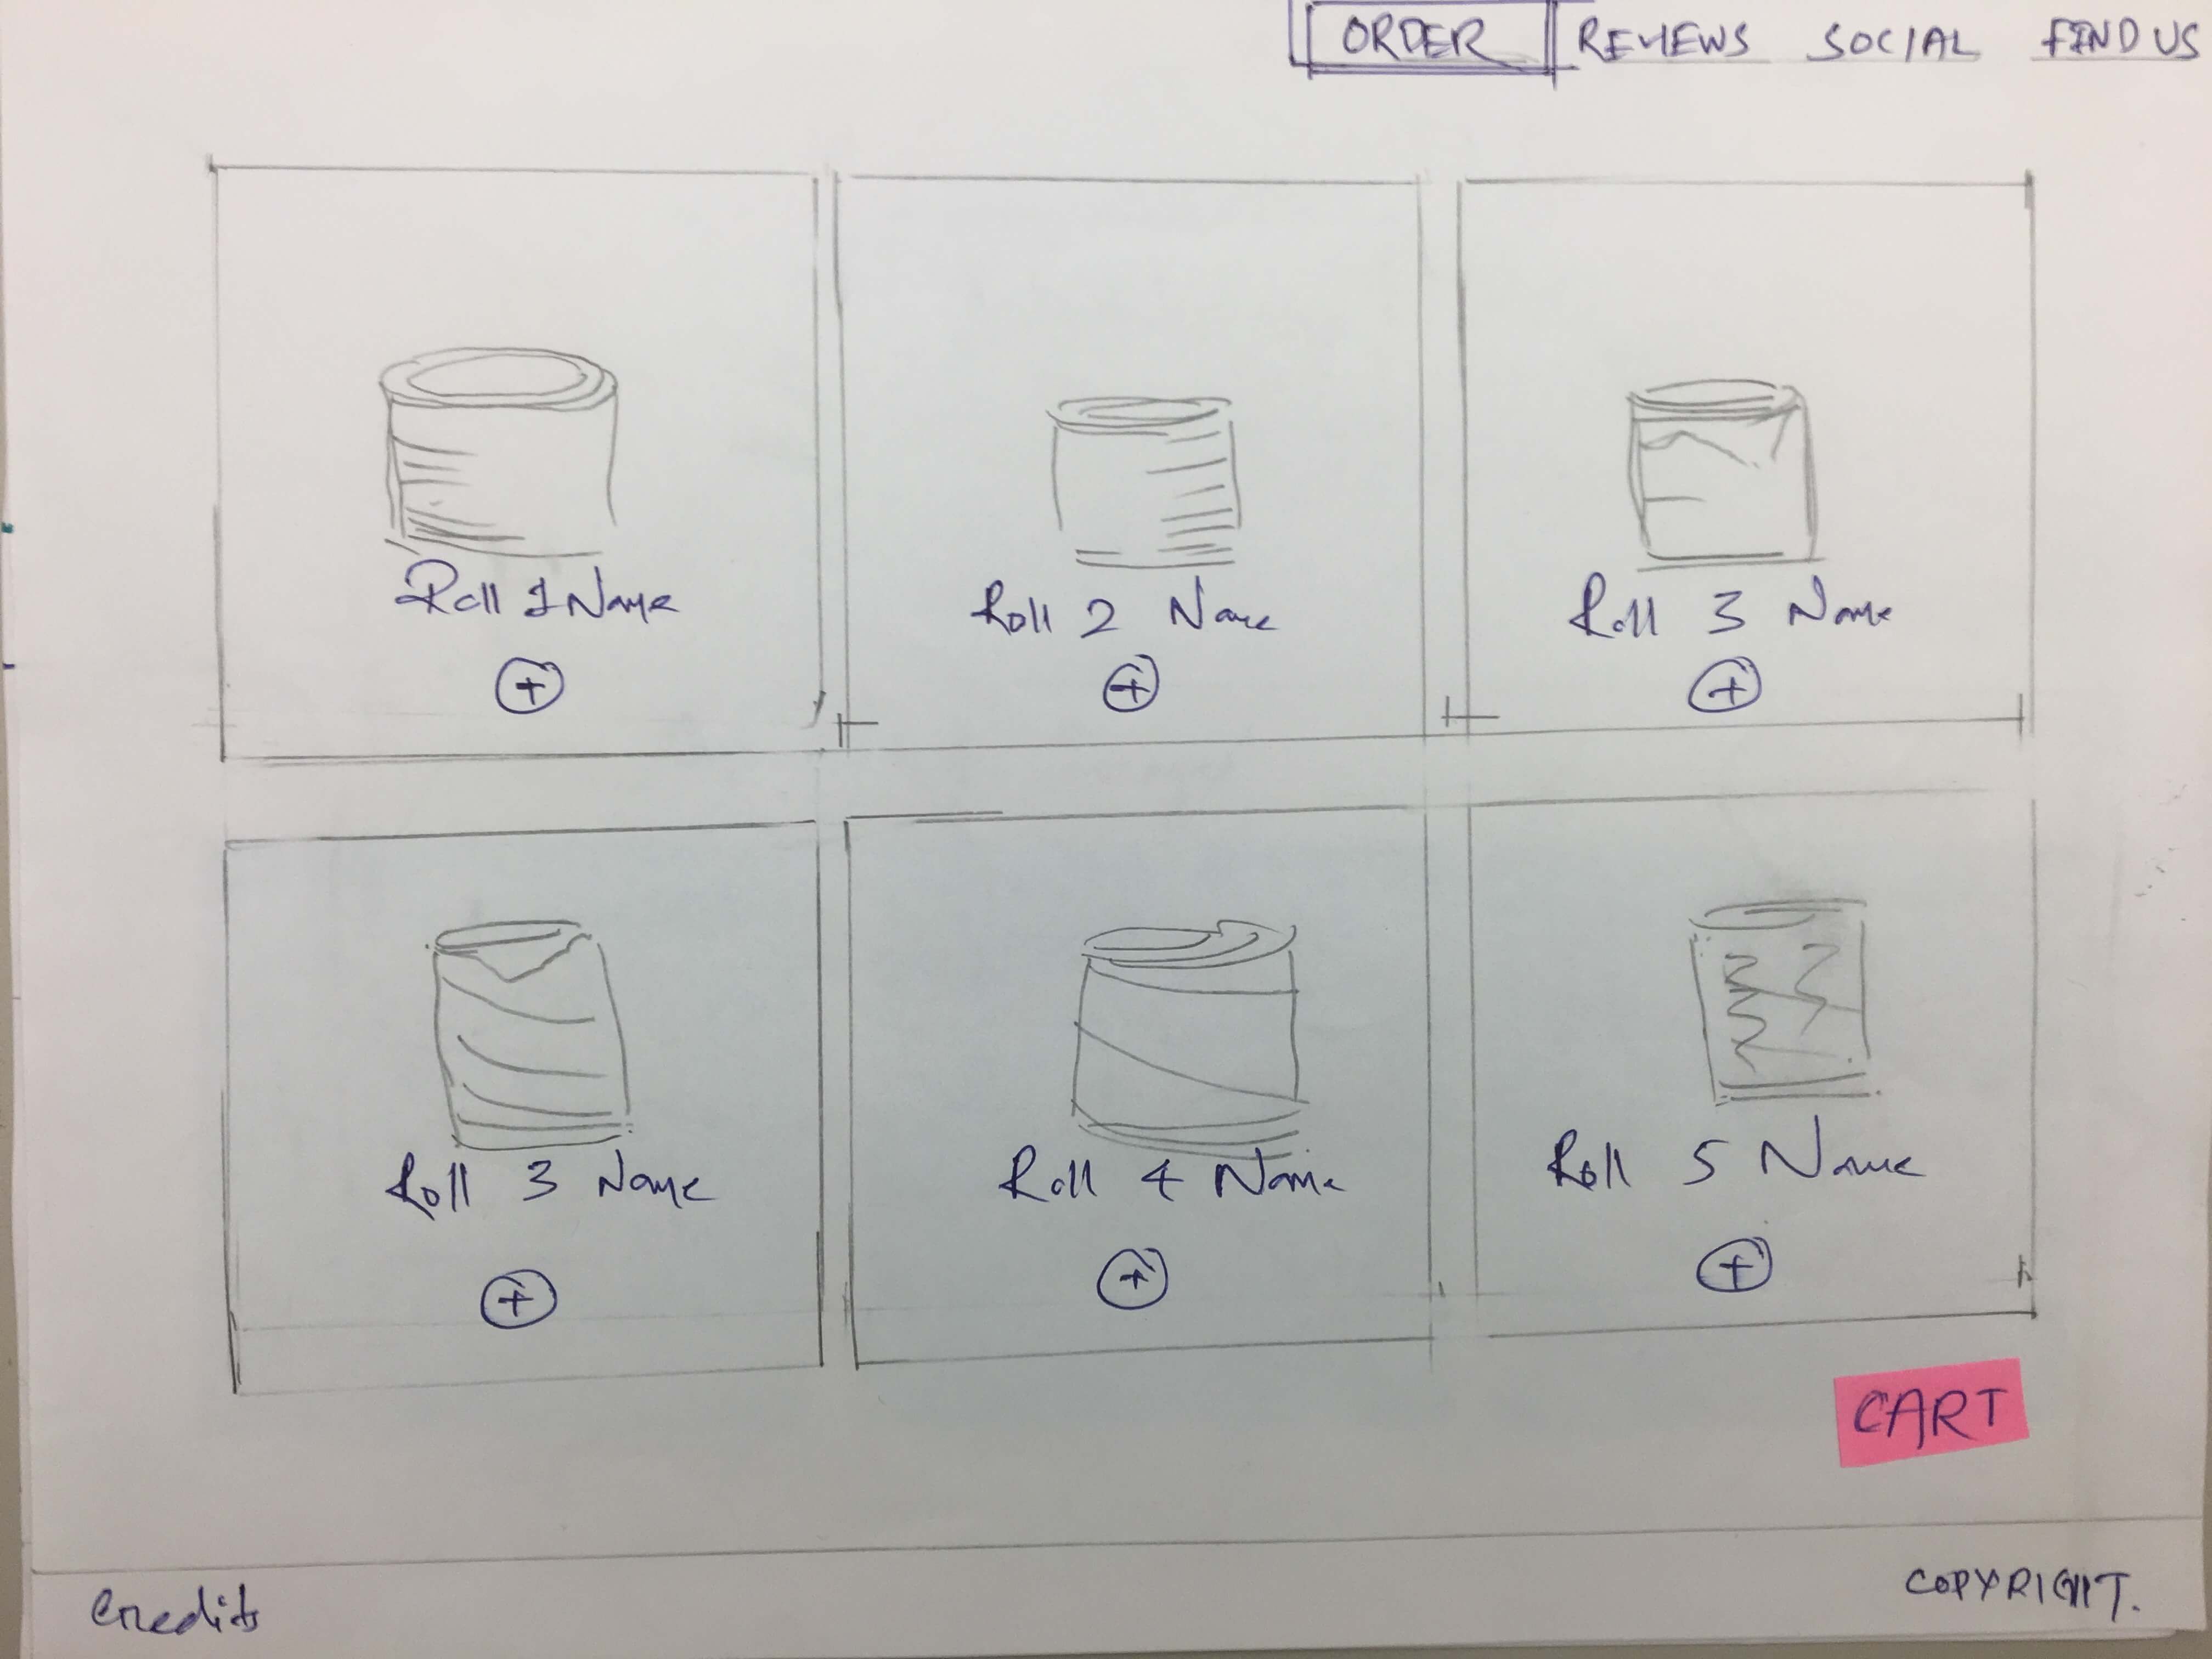 ORDER REVIEWS SOCIAL FIND US
Roll 1 Name
Roll 2 Name
Roll 3 Name
+
+
+
Roll 3 Name
Roll 4 Name
Roll 5 Name
+
+
+
CART
Credits
COPYRIGHT.